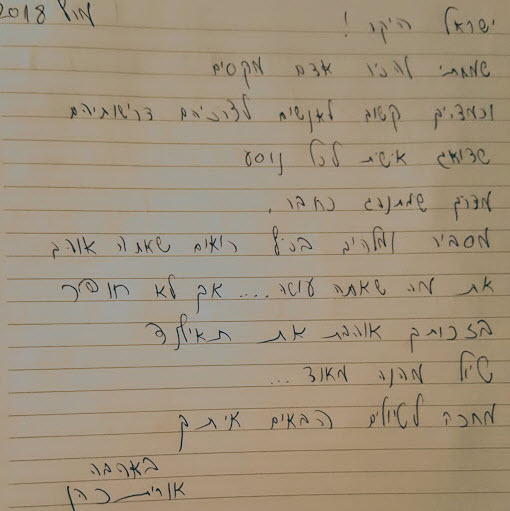 מרץ 2018
ישראל היקר !
שמחתי להכיר אדם מקסים
וכמדריך קשוב לאנשים לצרכיהם דרישותיהם
שדואג אישית לכל נוסע
מדריך שמתנהג כחבר.
מסביר ומלהיב בכיף רואים שאתה אוהב
את מה שאתה עושה.... אך לא חופר
בזכותך אוהבת את תאילנד
טיול מהנה מאוד ...
מחכה לטיולים הבאים איתך
באהבה
אורית כהן